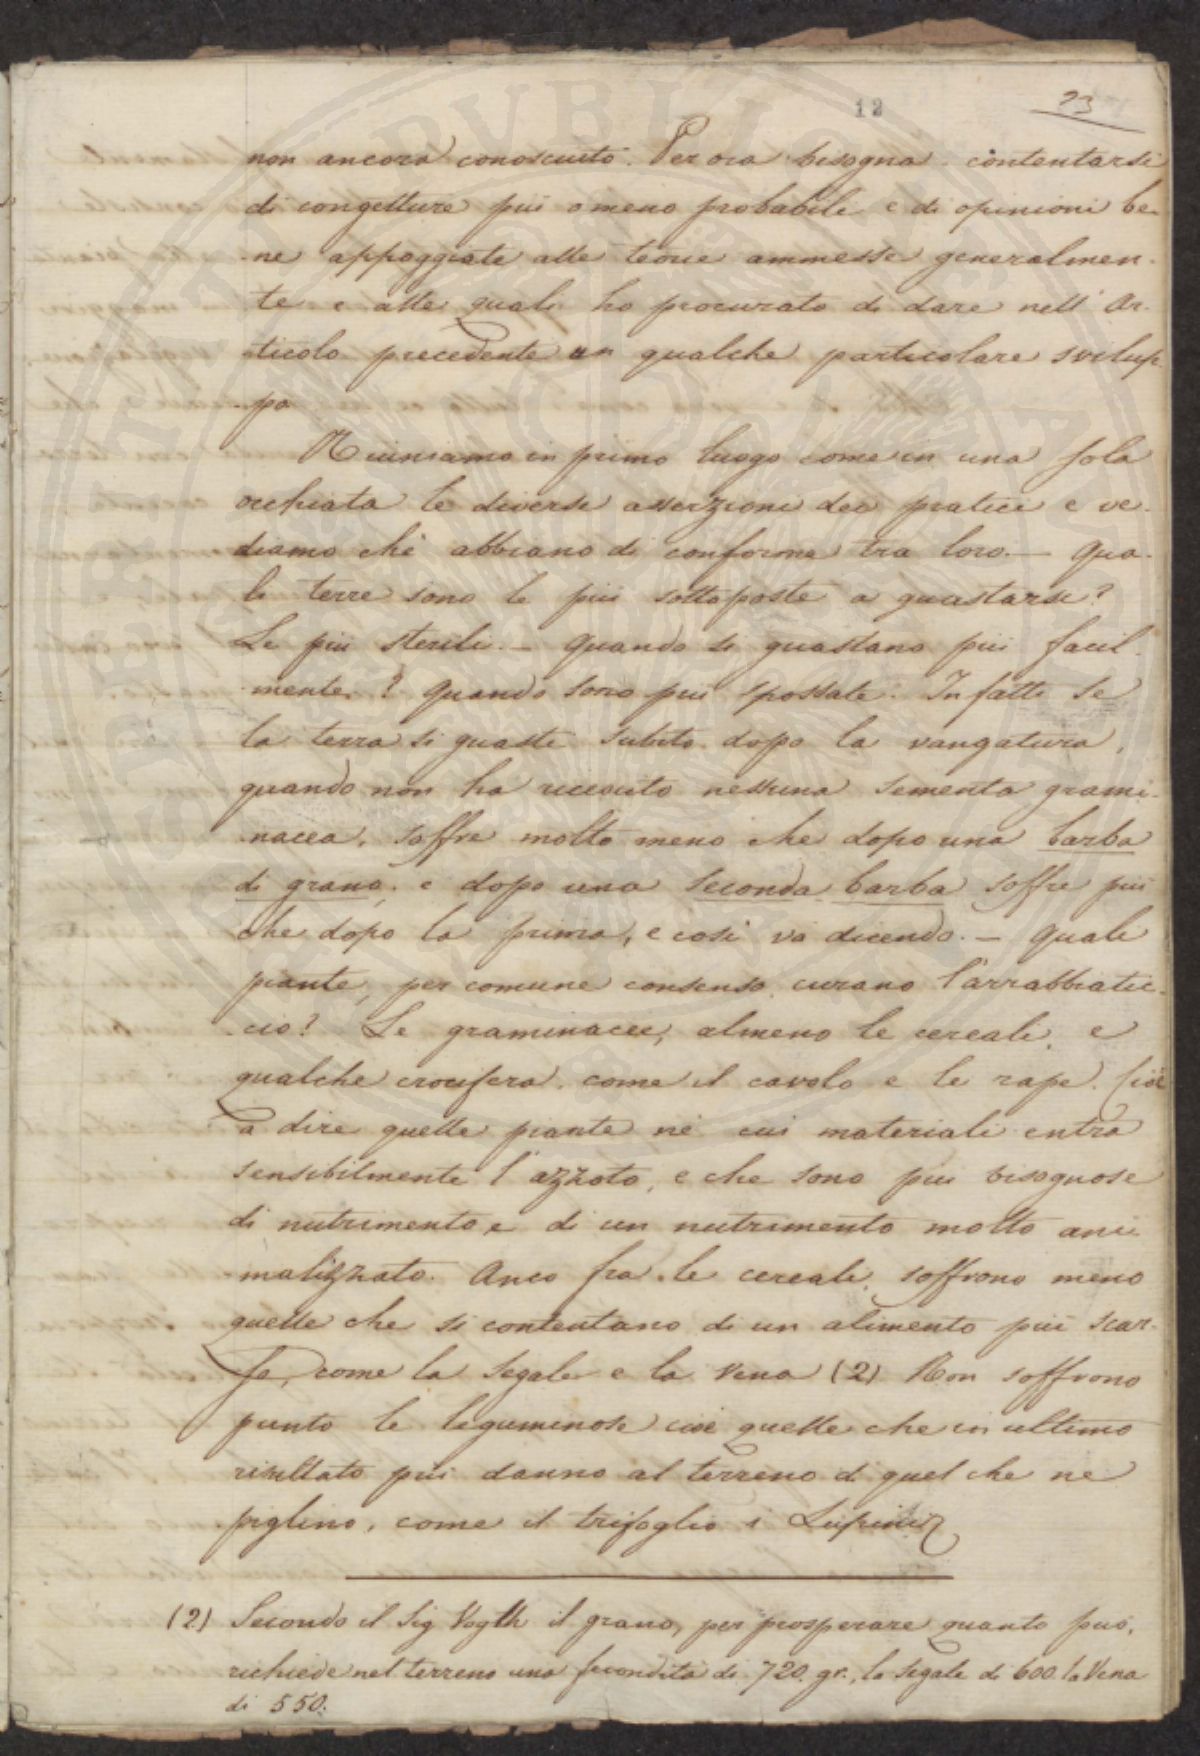 12
23
non ancora conosciuto. Per ora bisogna contentarsi
di congetture più o meno probabili e di opinioni be-
ne appoggiate alle teorie ammesse generalmen-
te e alle quali ho procurato di dare nell' Ar-
ticolo precedente un qualche particolare svilup-
po.
Riuniamo in primo luogo come in una sola
occhiata le diverse asserzioni dei pratici e ve-
diamo che abbiano di conforme tra loro. — Qua-
li terre sono le più sottoposte a guastarsi?
Le più sterili. — Quando si guastano più facil-
mente? Quando sono più spossate. In fatti se
la terra si guasti subito dopo la vangatura,
quando non ha ricevuto nessuna sementa grami-
nacea, soffre molto meno che dopo una barba
di grano, e dopo una seconda barba soffre più
che dopo la prima, e così va dicendo. — Quali
piante, per comune consenso, curano l'arrabbiatic-
cio? Le graminacee, almeno le cereali, e
qualche crocifera, come il cavolo e le rape. Cioè
a dire quelle piante ne' cui materiali entra
sensibilmente l'azzoto, e che sono più bisognose
di nutrimento, e di un nutrimento molto ani-
malizzato. Anco fra le cereali, soffrono meno
quelle che si contentano di un alimento più scar-
so, come la Segale e la Vena (2) Non soffrono
punto le leguminose cioè quelle che in ultimo
risultato più danno al terreno di quel che ne
piglino, come il trifoglio i Lupini
(2) Secondo il Sig Vogth il grano, per prosperare quanto può,
richiede nel terreno una fecondità di 720. gr., la Segale di 600. la Vena
di 550.